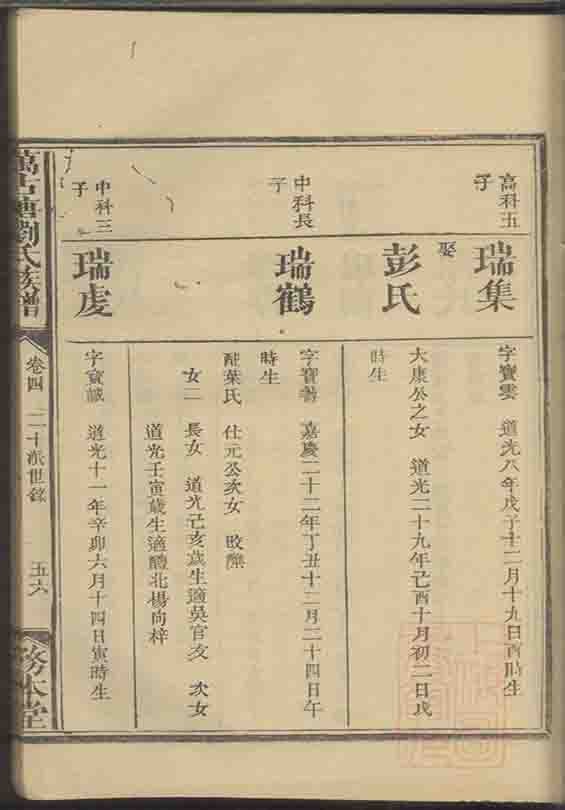 高科五
子
瑞集
字寶雲 道光八年戊子十二月十九日酉時生
娶
彭氏
大康公之女 道光二十九年己酉十月初二日戌
時生
中科長
子
瑞鶴
字寶 嘉慶二十二年丁丑十二月二十四日午
時生
配葉氏 仕元公次女 歿
女二 長女 道光己亥歲生適吳官交 次女
道光壬寅歲生適醴北楊向梓
中科三
子
瑞虔
字寶誠 道光十一年辛卯六月十四日寅時生
萬古塘劉氏族譜
卷四 二十派世錄
五六
務本堂